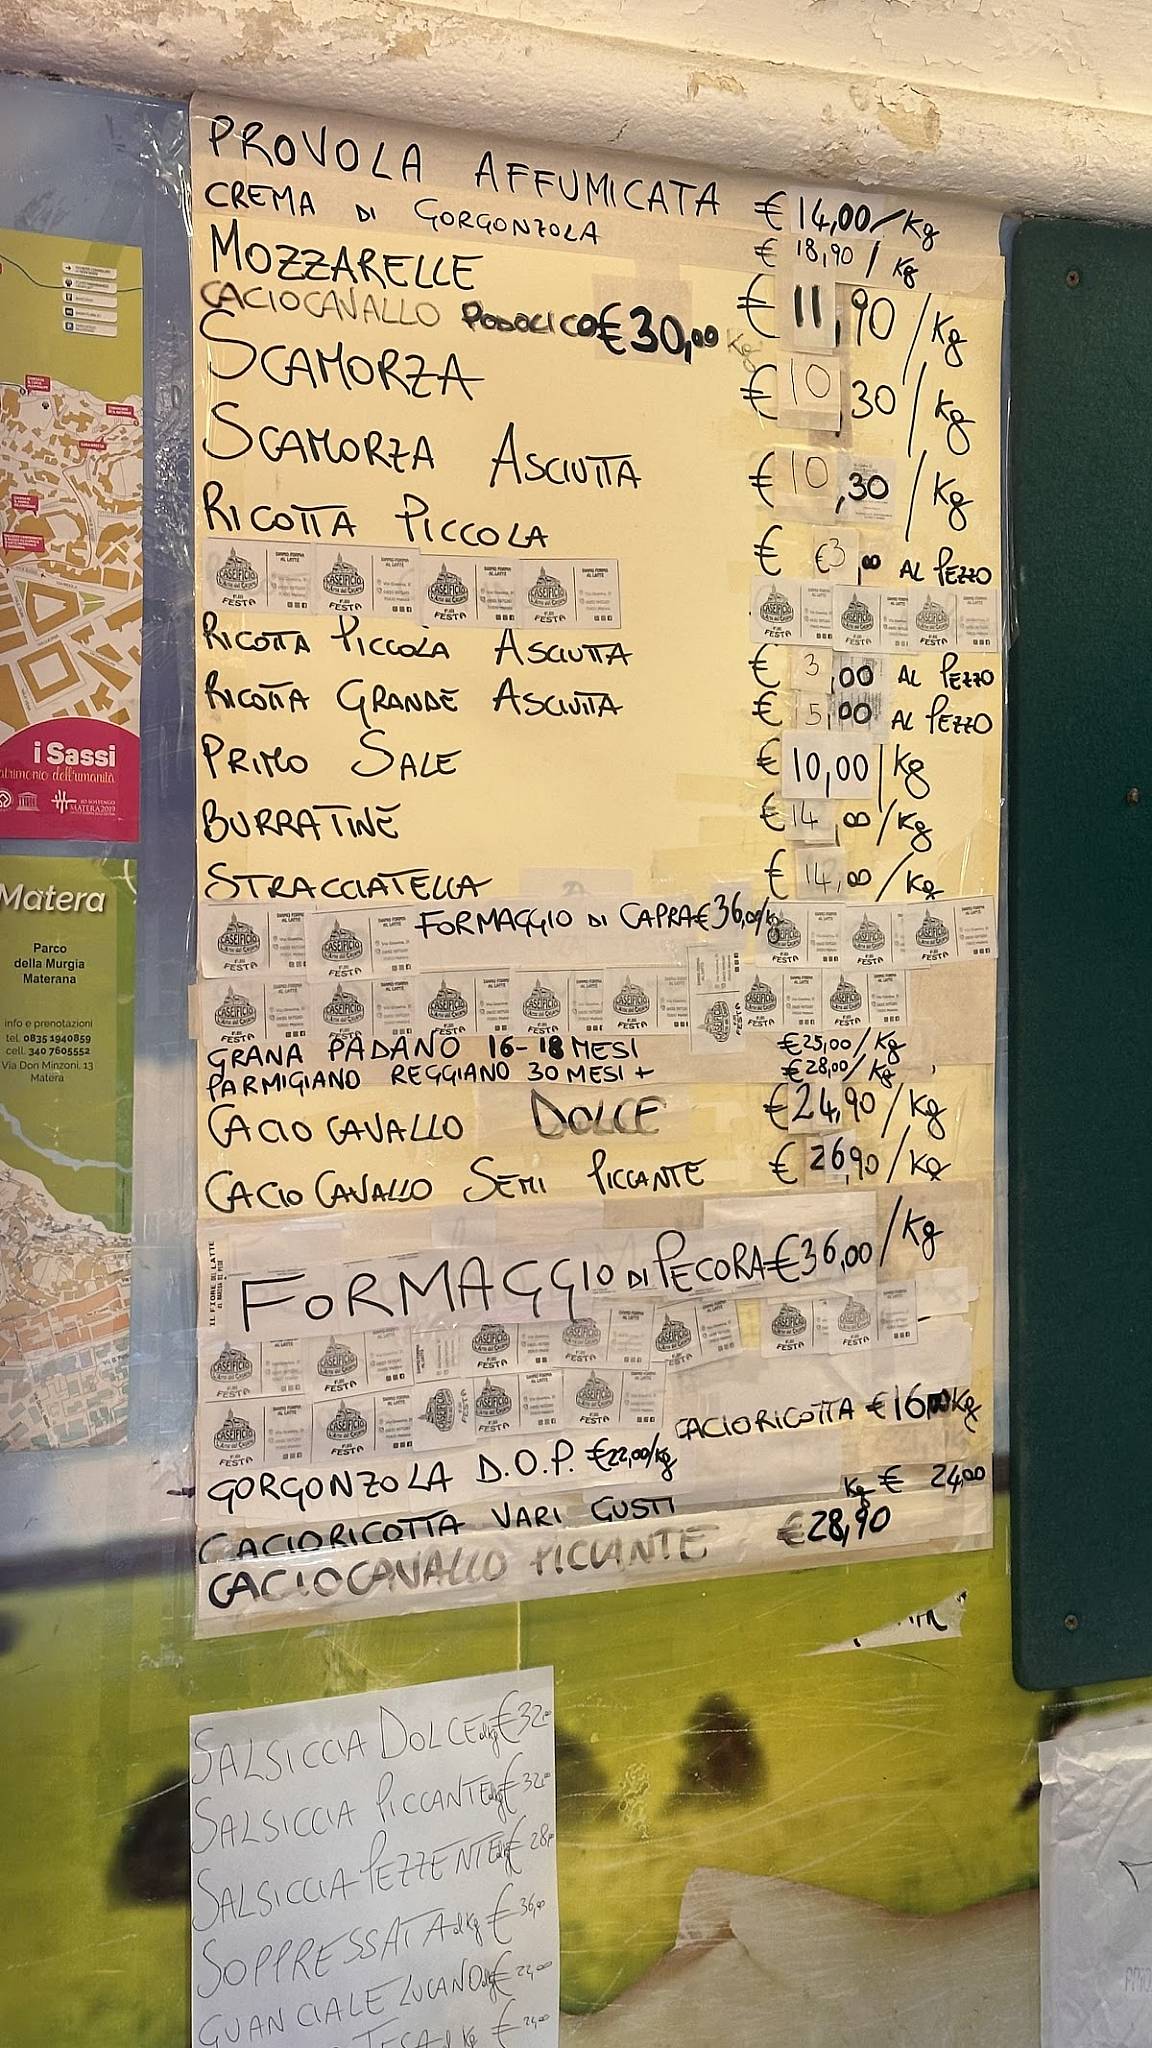 PROVOLA AFFUMICATA € 14,00/Kg
CREMA DI GORGONZOLA € 18,90 / Kg
MOZZARELLE € 11,90 / Kg
CACIOCAVALLO PODOLICO € 30,00 Kg
SCAMORZA € 10,30 / Kg
SCAMORZA ASCIUTTA € 10,30 / Kg
RICOTTA PICCOLA € €3,00 AL PEZZO
RICOTTA PICCOLA ASCIUTTA € 3,00 AL PEZZO
RICOTTA GRANDE ASCIUTTA € 5,00 AL PEZZO
PRIMO SALE € 10,00/Kg
BURRATINE € 14,00/Kg
STRACCIATELLA € 14,00/Kg
FORMAGGIO DI CAPRA € 36,00/Kg
CASEIFICIO
F.lli FESTA
DIAMO FORMA AL LATTE
GRANA PADANO 16-18 MESI €25,00/Kg
PARMIGIANO REGGIANO 30 MESI + €28,00/Kg
CACIOCAVALLO DOLCE €24,90/Kg
CACIOCAVALLO SEMI PICCANTE € 26,90/Kg
IL FIORE DEL LATTE
FORMAGGIO DI PECORA €36,00/Kg
CACIORICOTTA €16,00 Kg
GORGONZOLA D.O.P. €22,00/Kg
CACIORICOTTA VARI GUSTI Kg € 24,00
CACIOCAVALLO PICCANTE €28,90
SALSICCIA DOLCE al Kg € 32,00
SALSICCIA PICCANTE al Kg € 32,00
SALSICCIA PEZZENTE al Kg € 28,00
SOPPRESSATA al Kg € 36,00
GUANCIALE LUCANO al Kg € 22,00
i Sassi
MATERA 2019
Matera
Parco
della Murgia
Materana
info e prenotazioni
tel. 0835 1940859
cell. 340 7605552
Via Don Minzoni, 13
Matera